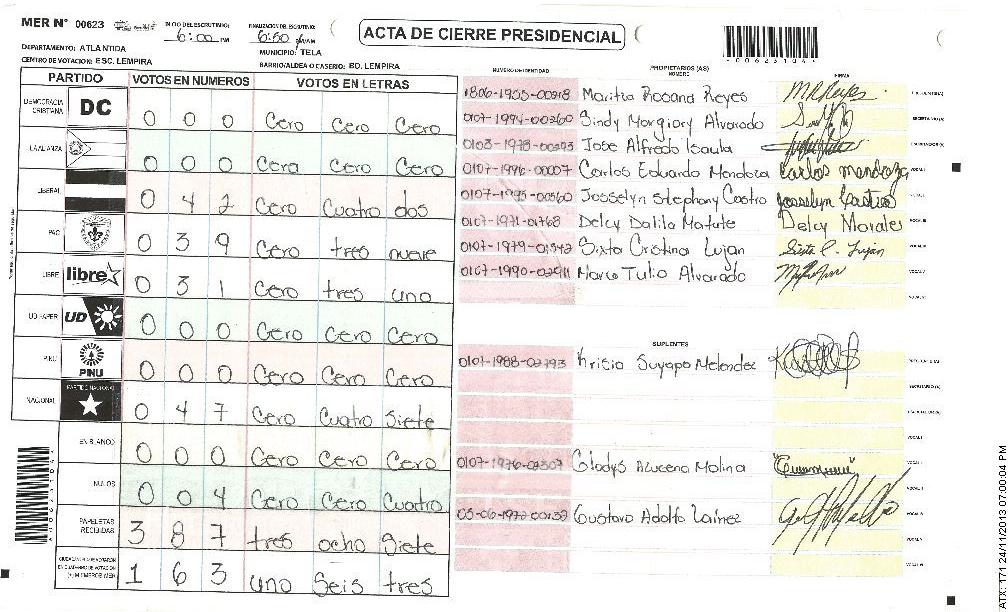 MER N° 00623
INICIO DEL ESCRUTINIO:
6:00 PM
FINALIZACION DEL ESCRUTINIO:
6:50 P/AM
ACTA DE CIERRE PRESIDENCIAL
*00623104*
DEPARTAMENTO: ATLANTIDA
MUNICIPIO: TELA
CENTRO DE VOTACION: ESC. LEMPIRA
BARRIO/ALDEA O CASERIO: BO. LEMPIRA
PARTIDO VOTOS EN NUMEROS VOTOS EN LETRAS
DEMOCRACIA CRISTIANA DC 0 0 0 Cero Cero Cero
LA ALIANZA 0 0 0 Cero Cero Cero
LIBERAL 0 4 2 Cero Cuatro dos
PAC 0 3 9 Cero tres nueve
LIBRE libre 0 3 1 Cero tres uno
UD FAPER UD 0 0 0 Cero Cero Cero
PINU PINU 0 0 0 Cero Cero Cero
NACIONAL PARTIDO NACIONAL 0 4 7 Cero Cuatro Siete
EN BLANCO 0 0 0 Cero Cero Cero
NULOS 0 0 4 Cero Cero Cuatro
PAPELETAS RECIBIDAS 3 8 7 tres ocho Siete
1 6 3 uno Seis tres
NUMERO DE IDENTIDAD PROPIETARIOS (AS) NOMBRE FIRMA
1806-1955-00218 Maritza Rosana Reyes M R Reyes PRESIDENTE(A)
0107-1994-00260 Sindy Margiory Alvarado SECRETARIO(A)
0103-1978-00293 Jose Alfredo Isaula ESCRUTADOR(A)
0107-1996-00007 Carlos Eduardo Mendoza Carlos mendoza VOCAL I
0107-1995-00560 Josselyn Stephany Castro Josselyn Castro VOCAL II
0107-1971-01768 Delcy Dalila Matute Delcy Morales VOCAL III
0107-1979-01542 Sixta Cristina Lujan Sixta C. Lujan VOCAL IV
0107-1990-02911 Marco Tulio Alvarado VOCAL V
VOCAL VI
SUPLENTES
0107-1988-02793 Krisia Suyapa Melendez PRESIDENTE(A)
SECRETARIO(A)
ESCRUTADOR(A)
VOCAL I
0107-1976-02307 Gladys Azucena Molina VOCAL II
VOCAL III
05-06-1972-00132 Gustavo Adolfo Lainez VOCAL IV
VOCAL V
VOCAL VI
ATX: 171 24/11/2013 07:00:04 PM